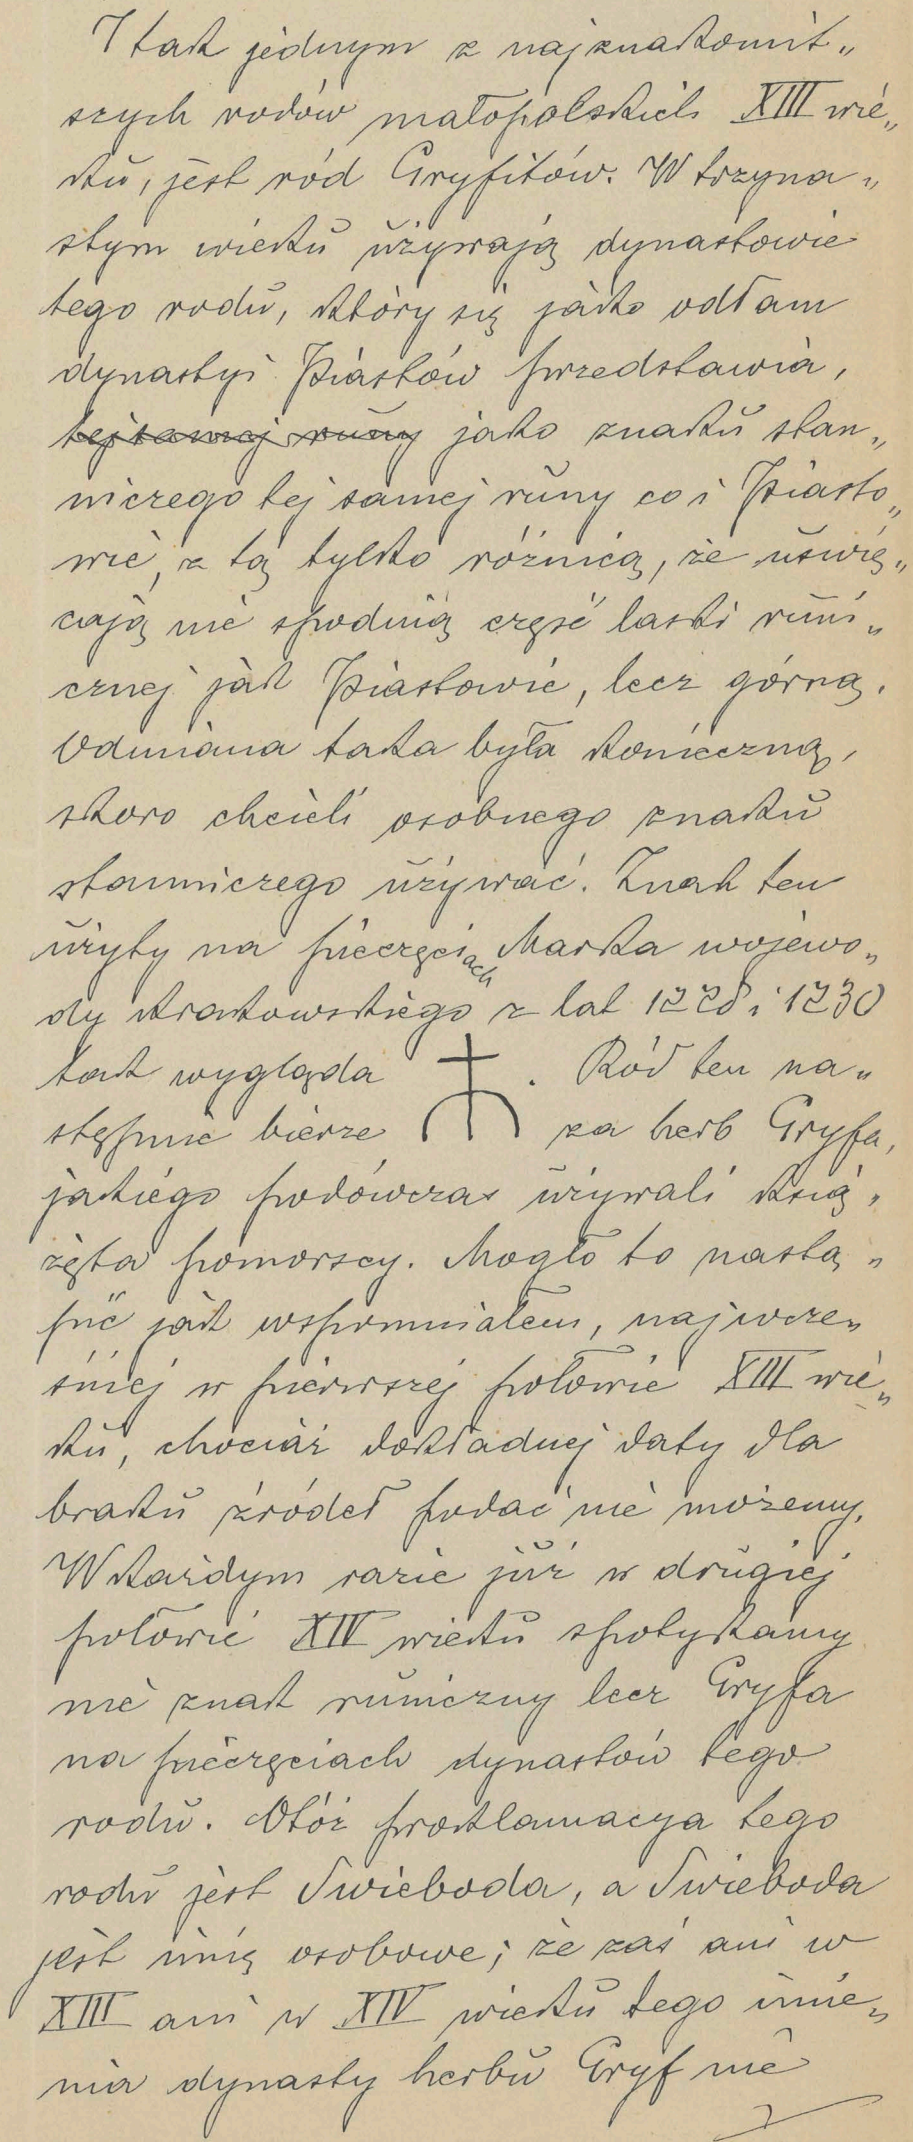 I tak jednym z najznakomit„
szych rodów małopolskich XIII wie„
ku, jest ród Gryfitów. W trzyna„
stym wieku używają dynastowie
tego rodu, który się jako odłam
dynastyi Piastów przedstawia,
tej samej runy jako znaku stan„
niczego tej samej runy co i Piasto„
wie, z tą tylko różnicą, że uświę„
cają nie spodnią część laski runi„
cznej jak Piastowie, lecz górną.
Odmiana taka była konieczną,
skoro chcieli osobnego znaku
stanniczego używać. Znak ten
użyty na pieczęciach Marka wojewo„
dy krakowskiego z lat 1228 i 1230
tak wygląda . Ród ten na„
stępnie bierze za herb Gryfa,
jakiego podówczas używali ksią„
żęta pomorscy. Mogło to nastą„
pić jak wspomniałem, najwcze„
śniej w pierwszej połowie XIII wie„
ku, chociaż dokładnej daty dla
braku źródeł podać nie możemy.
W każdym razie już w drugiej
połowie XIV wieku spotykamy
nie znak runiczny lecz Gryfa
na pieczęciach dynastów tego
rodu. Otóż proklamacya tego
rodu jest Swieboda, a Swieboda
jest imię osobowe; że zaś ani w
XIII ani w XIV wieku tego imie„
nia dynasty herbu Gryf nie